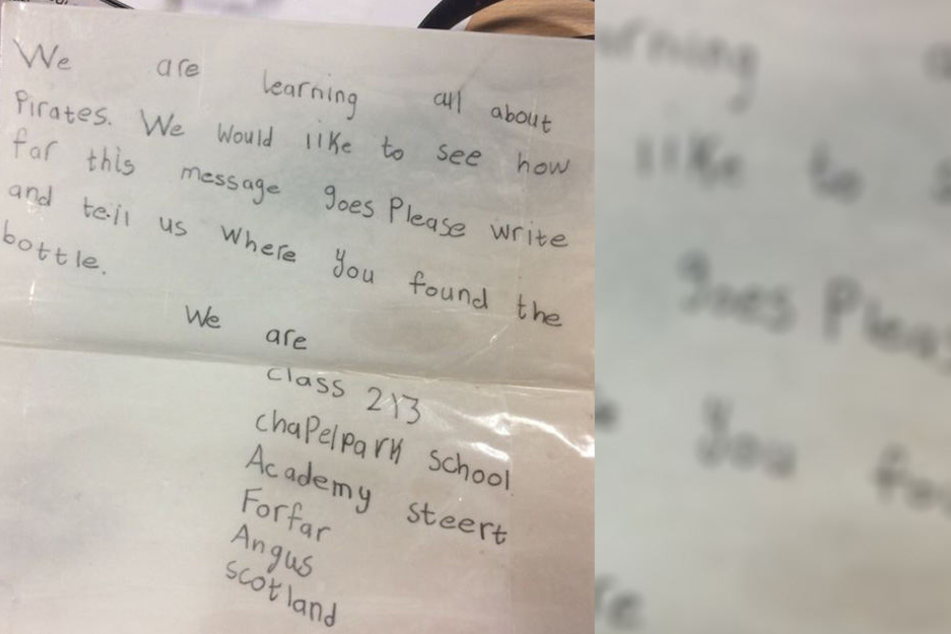 We are learning all about
Pirates. We would like to see how
far this message goes Please write
and tell us where you found the
bottle.
We are
class 2\3
chapelpark school
Academy steert
Forfar
Angus
scotland